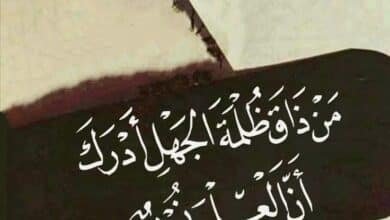 مَنْ ذَاقَ ظُلْمَةَ الْجَهْلِ أَدْرَكَ
أَنَّ الْعِلْمَ نُورٌ